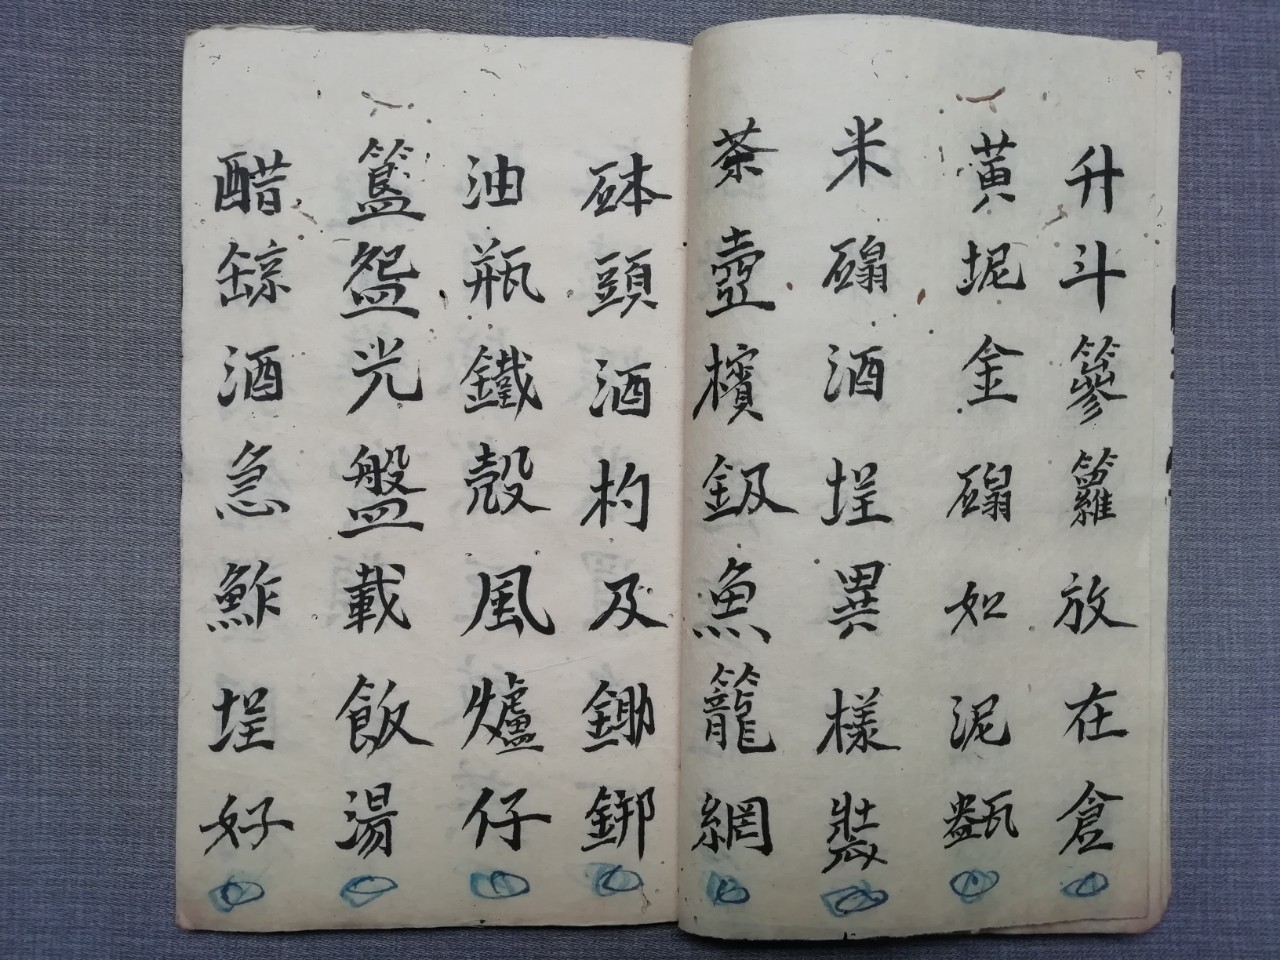 升斗篸籮放在倉
黃坭金磖如泥甆
米磖酒埕異樣裝
茶壺檳鈒魚籠網
砵頭酒杓及鋤鎯
油瓶鐵殼風爐仔
簋盌光盤載飯湯
醋䤗酒急鮓埕好